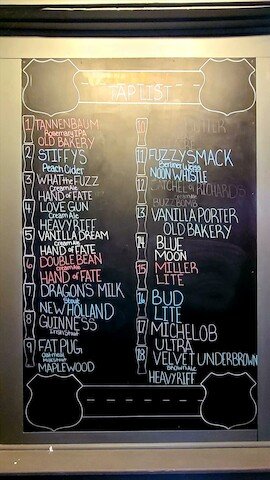 TAP LIST
1 TANNENBAUM
Rosemary IPA
OLD BAKERY
2 STIFFYS
Peach Cider
3 WHAT the FUZZ
Cream Ale
HAND of FATE
4 LOVE GUN
Cream Ale
HEAVY RIFF
5 VANILLA DREAM
Cream Ale
HAND of FATE
6 DOUBLE BEAN
Cream Ale
HAND of FATE
7 DRAGON'S MILK
Stout
NEW HOLLAND
8 GUINNESS
Irish Stout
9 FAT PUG
Oatmeal
Milk Stout
MAPLEWOOD
10
11 FUZZYSMACK
Berliner Weisse
NOON WHISTLE
12
BUZZ BOMB
13 VANILLA PORTER
OLD BAKERY
14 BLUE
MOON
15 MILLER
LITE
16 BUD
LITE
17 MICHELOB
ULTRA
18 VELVET UNDERBROWN
Brown Ale
HEAVY RIFF